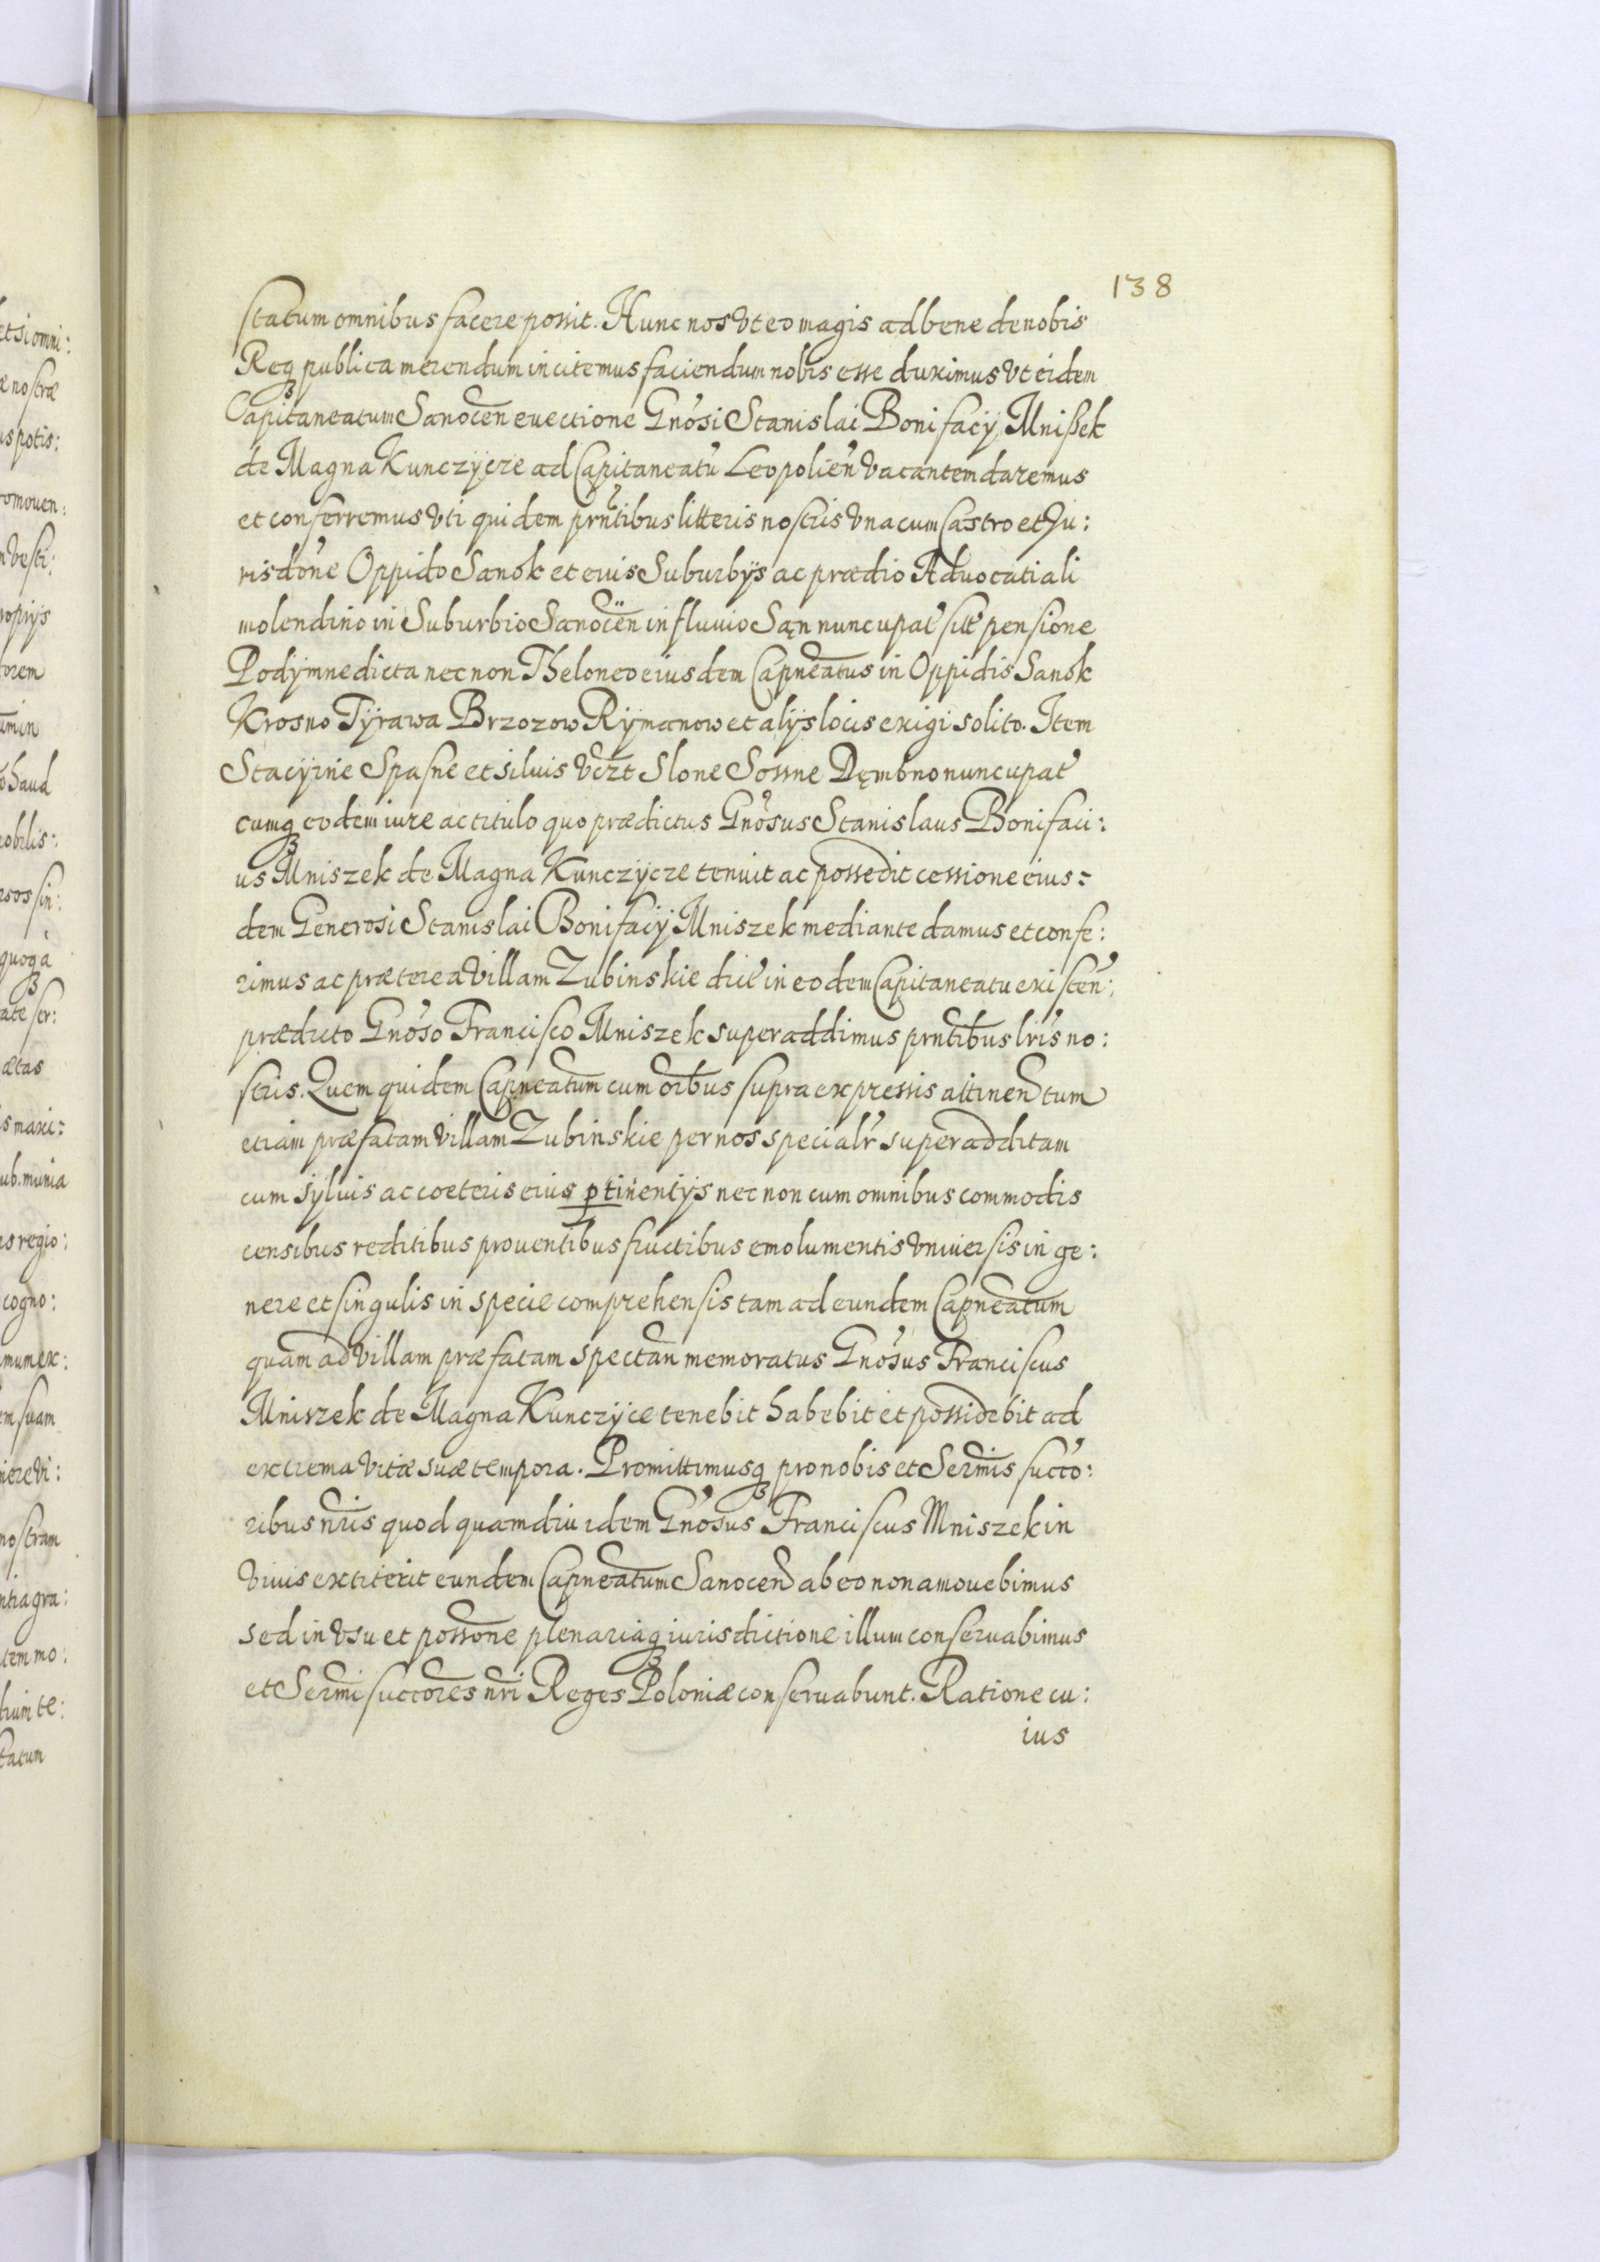 138
statum omnibus facere possit. Hunc nos vt eo magis ad bene de nobis
Reqꝫ publica merendum incitemus faciendum nobis esse duximus vt eidem
Capitaneatum Sanocen euectione Gnosi Stanislai Bonifacij Mnißek
de Magna Kunczycze ad Capitaneatu Leopolien vacantem daremus
et conferremus vti quidem prntibus litteris nostris vna cum Castro et Ju:
risdone Oppido Sanok et eius Suburbijs ac prædio Aduocatiali
molendino in Suburbio Sanocen in fluuio Sąn nuncupat silt pensione
Podymne dicta necnon Theloneo eiusdem Capneatus in Oppidis Sanok
Krosno Tyrawa Brzozow Rymanow et alijs locis exigi solito. Item
Stacyine Spasne et siluis vdzt Slone Sosne Dęmbno nuncupat
cumqꝫ eodem iure ac titulo quo prædictus Gnosus Stanislaus Bonifaci:
us Mniszek de Magna Kunczycze tenuit ac possedit cessione eius:
dem Generosi Stanislai Bonifacij Mniszek mediante damus et confe:
rimus ac præterea villam Zubinskie dict in eodem Capitaneatu existen:
prædicto Gnoso Francisco Mniszek superaddimus prntibus lris no:
stris. Quem quidem Capneatum cum oibus supra expressis attinen tum
etiam præfatam villam Zubinskie per nos specialr superadditam
cum sylvis ac coeteris eius ptinentijs nec non cum omnibus commodis
censibus reditibus prouentibus fructibus emolumentis vniuersis in ge:
nere et singulis in specie comprehensis tam ad eundem Capneatum
quam ad villam præfatam spectan memoratus Gnosus Franciscus
Mniszek de Magna Kunczyce tenebit habebit et possidebit ad
extrema vitæ suæ tempora. Promittimusqꝫ pro nobis et Sermis succo:
ribus nris quod quamdiu idem Gnosus Franciscus Mniszek in
viuis extiterit eundem Capneatum Sanocen ab eo non amouebimus
sed in vsu et possone plenariaqꝫ iurisdictione illum conseruabimus
et Sermi succores nri Reges Poloniæ conseruabunt. Ratione cu:
ius